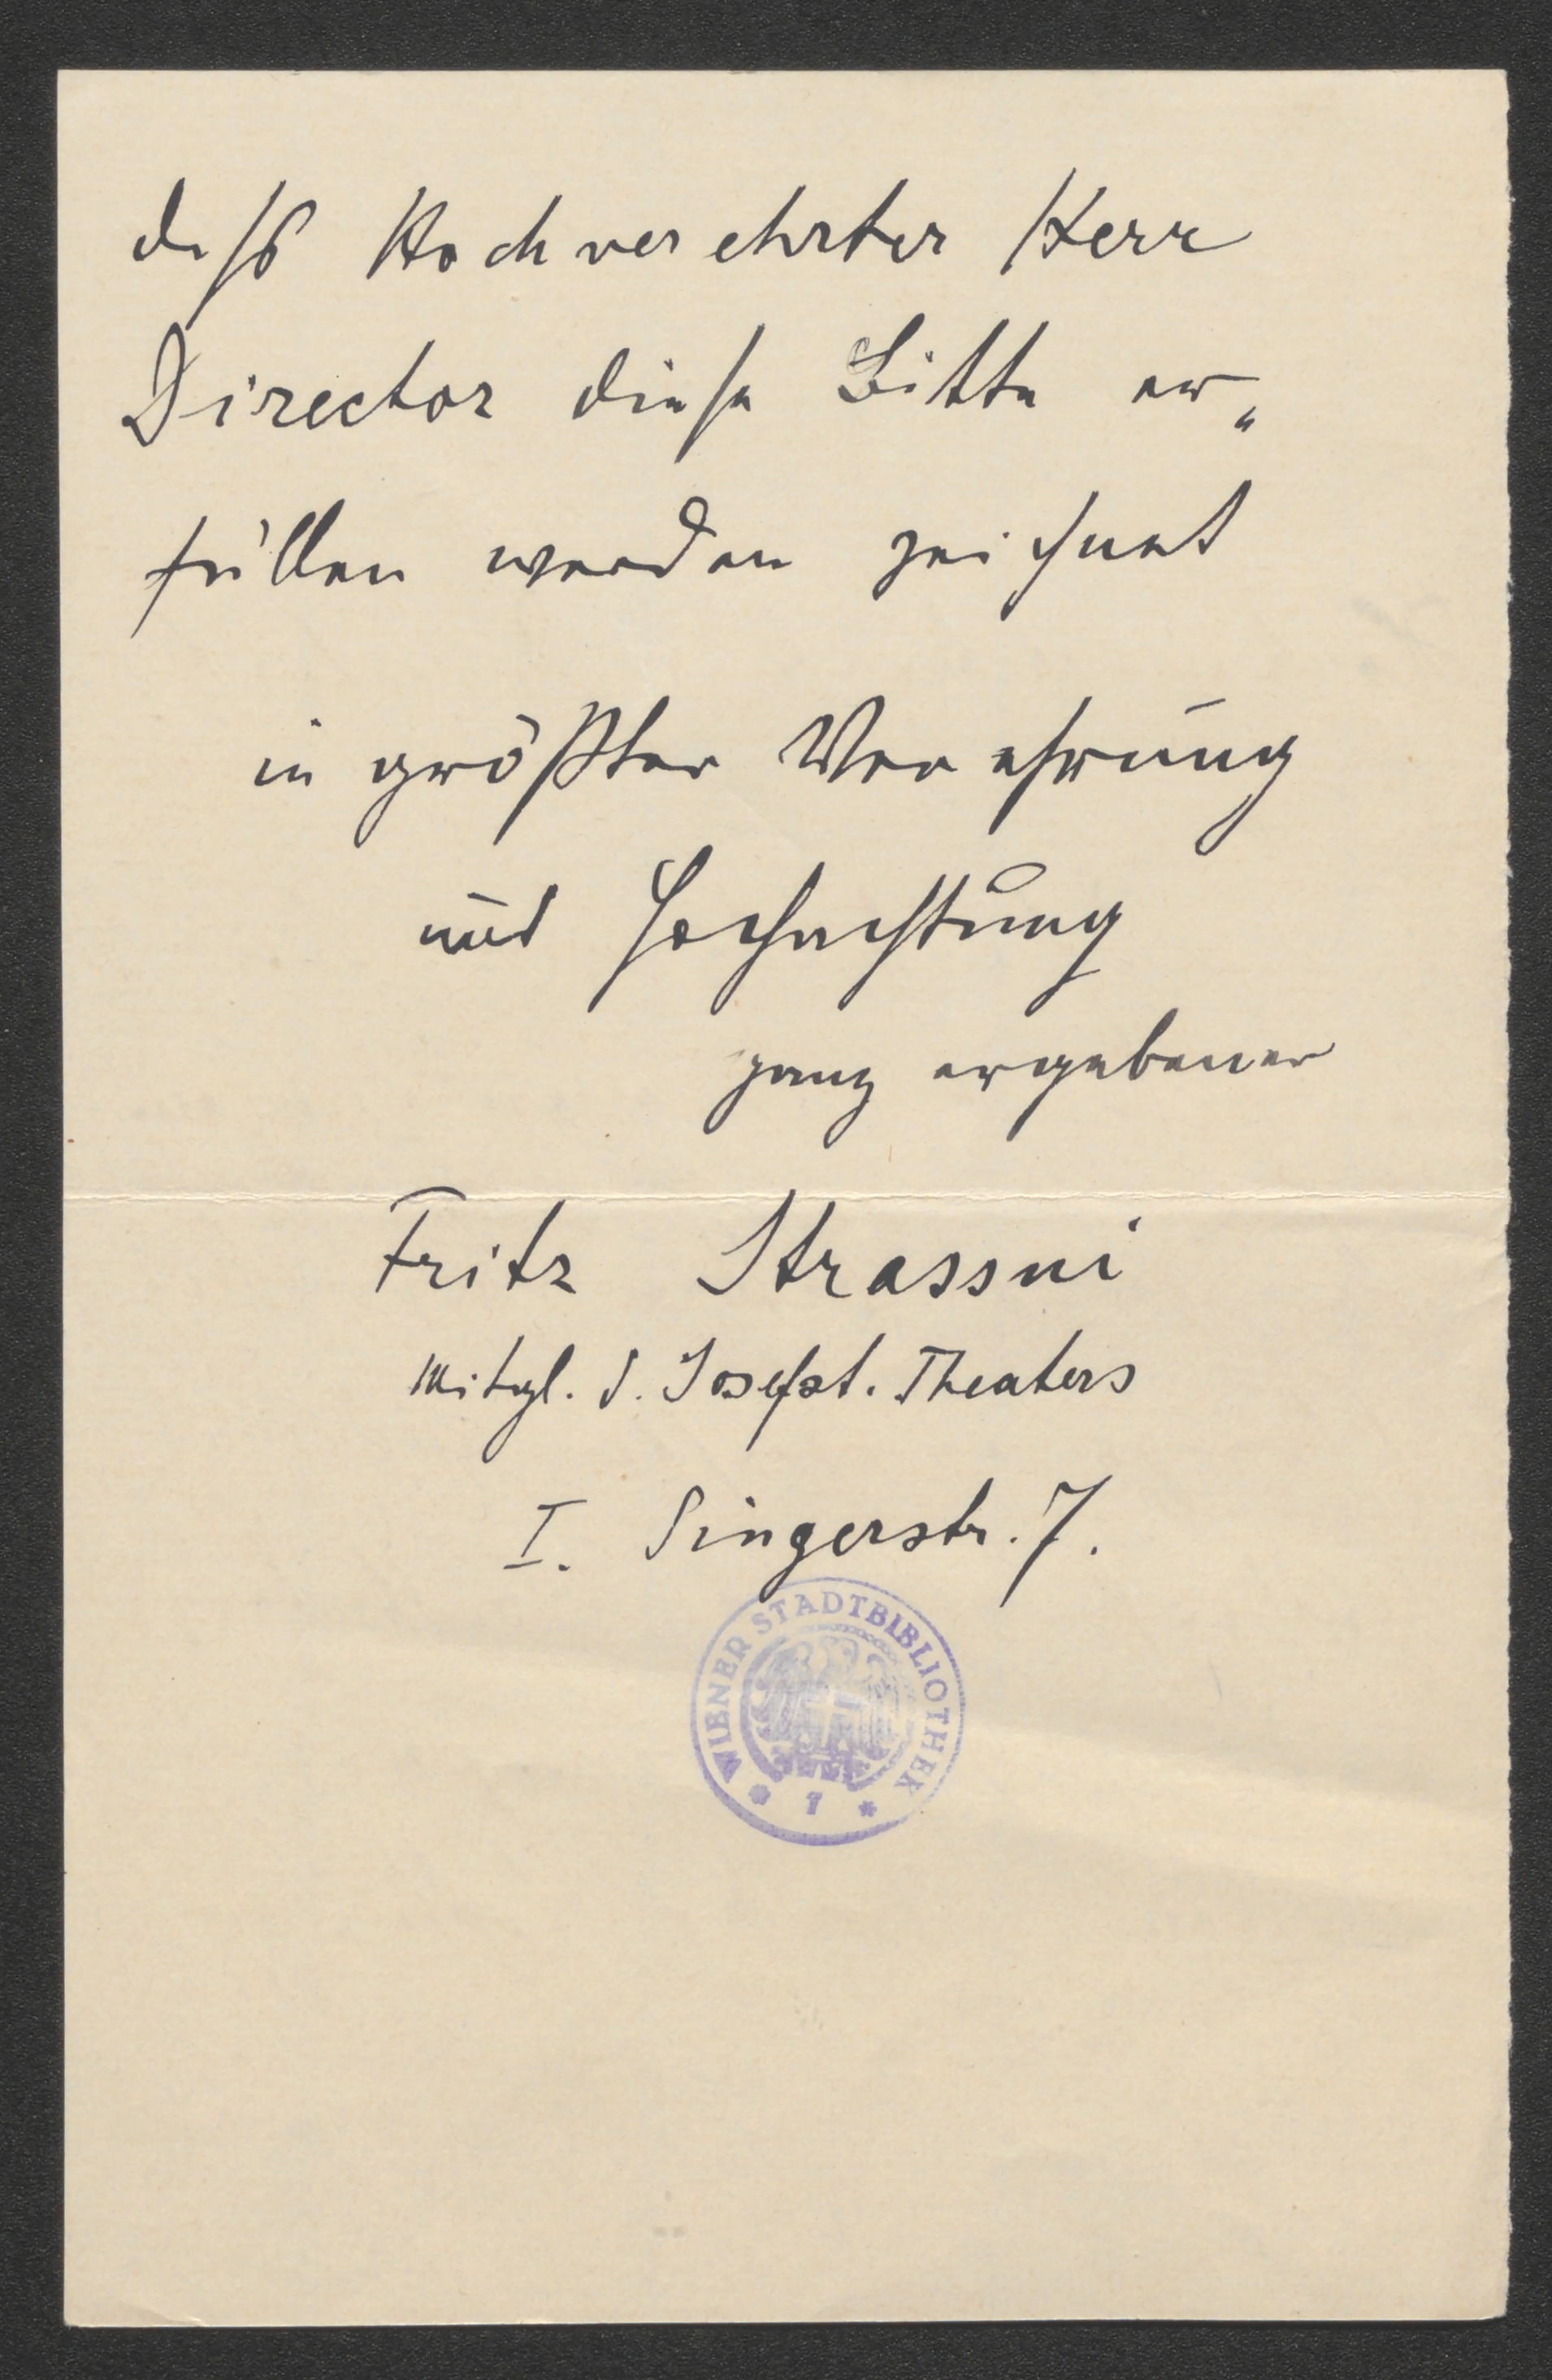 daß Hochverehrter Herr
Director diese Bitte er„
füllen werden zeichnet
in größter Verehrung
und Hochachtung
ganz ergebener
Fritz Strassni
Mitgl. d. Josefst. Theaters
I. Singerstr. 7.
WIENER STADTBIBLIOTHEK
* 1 *